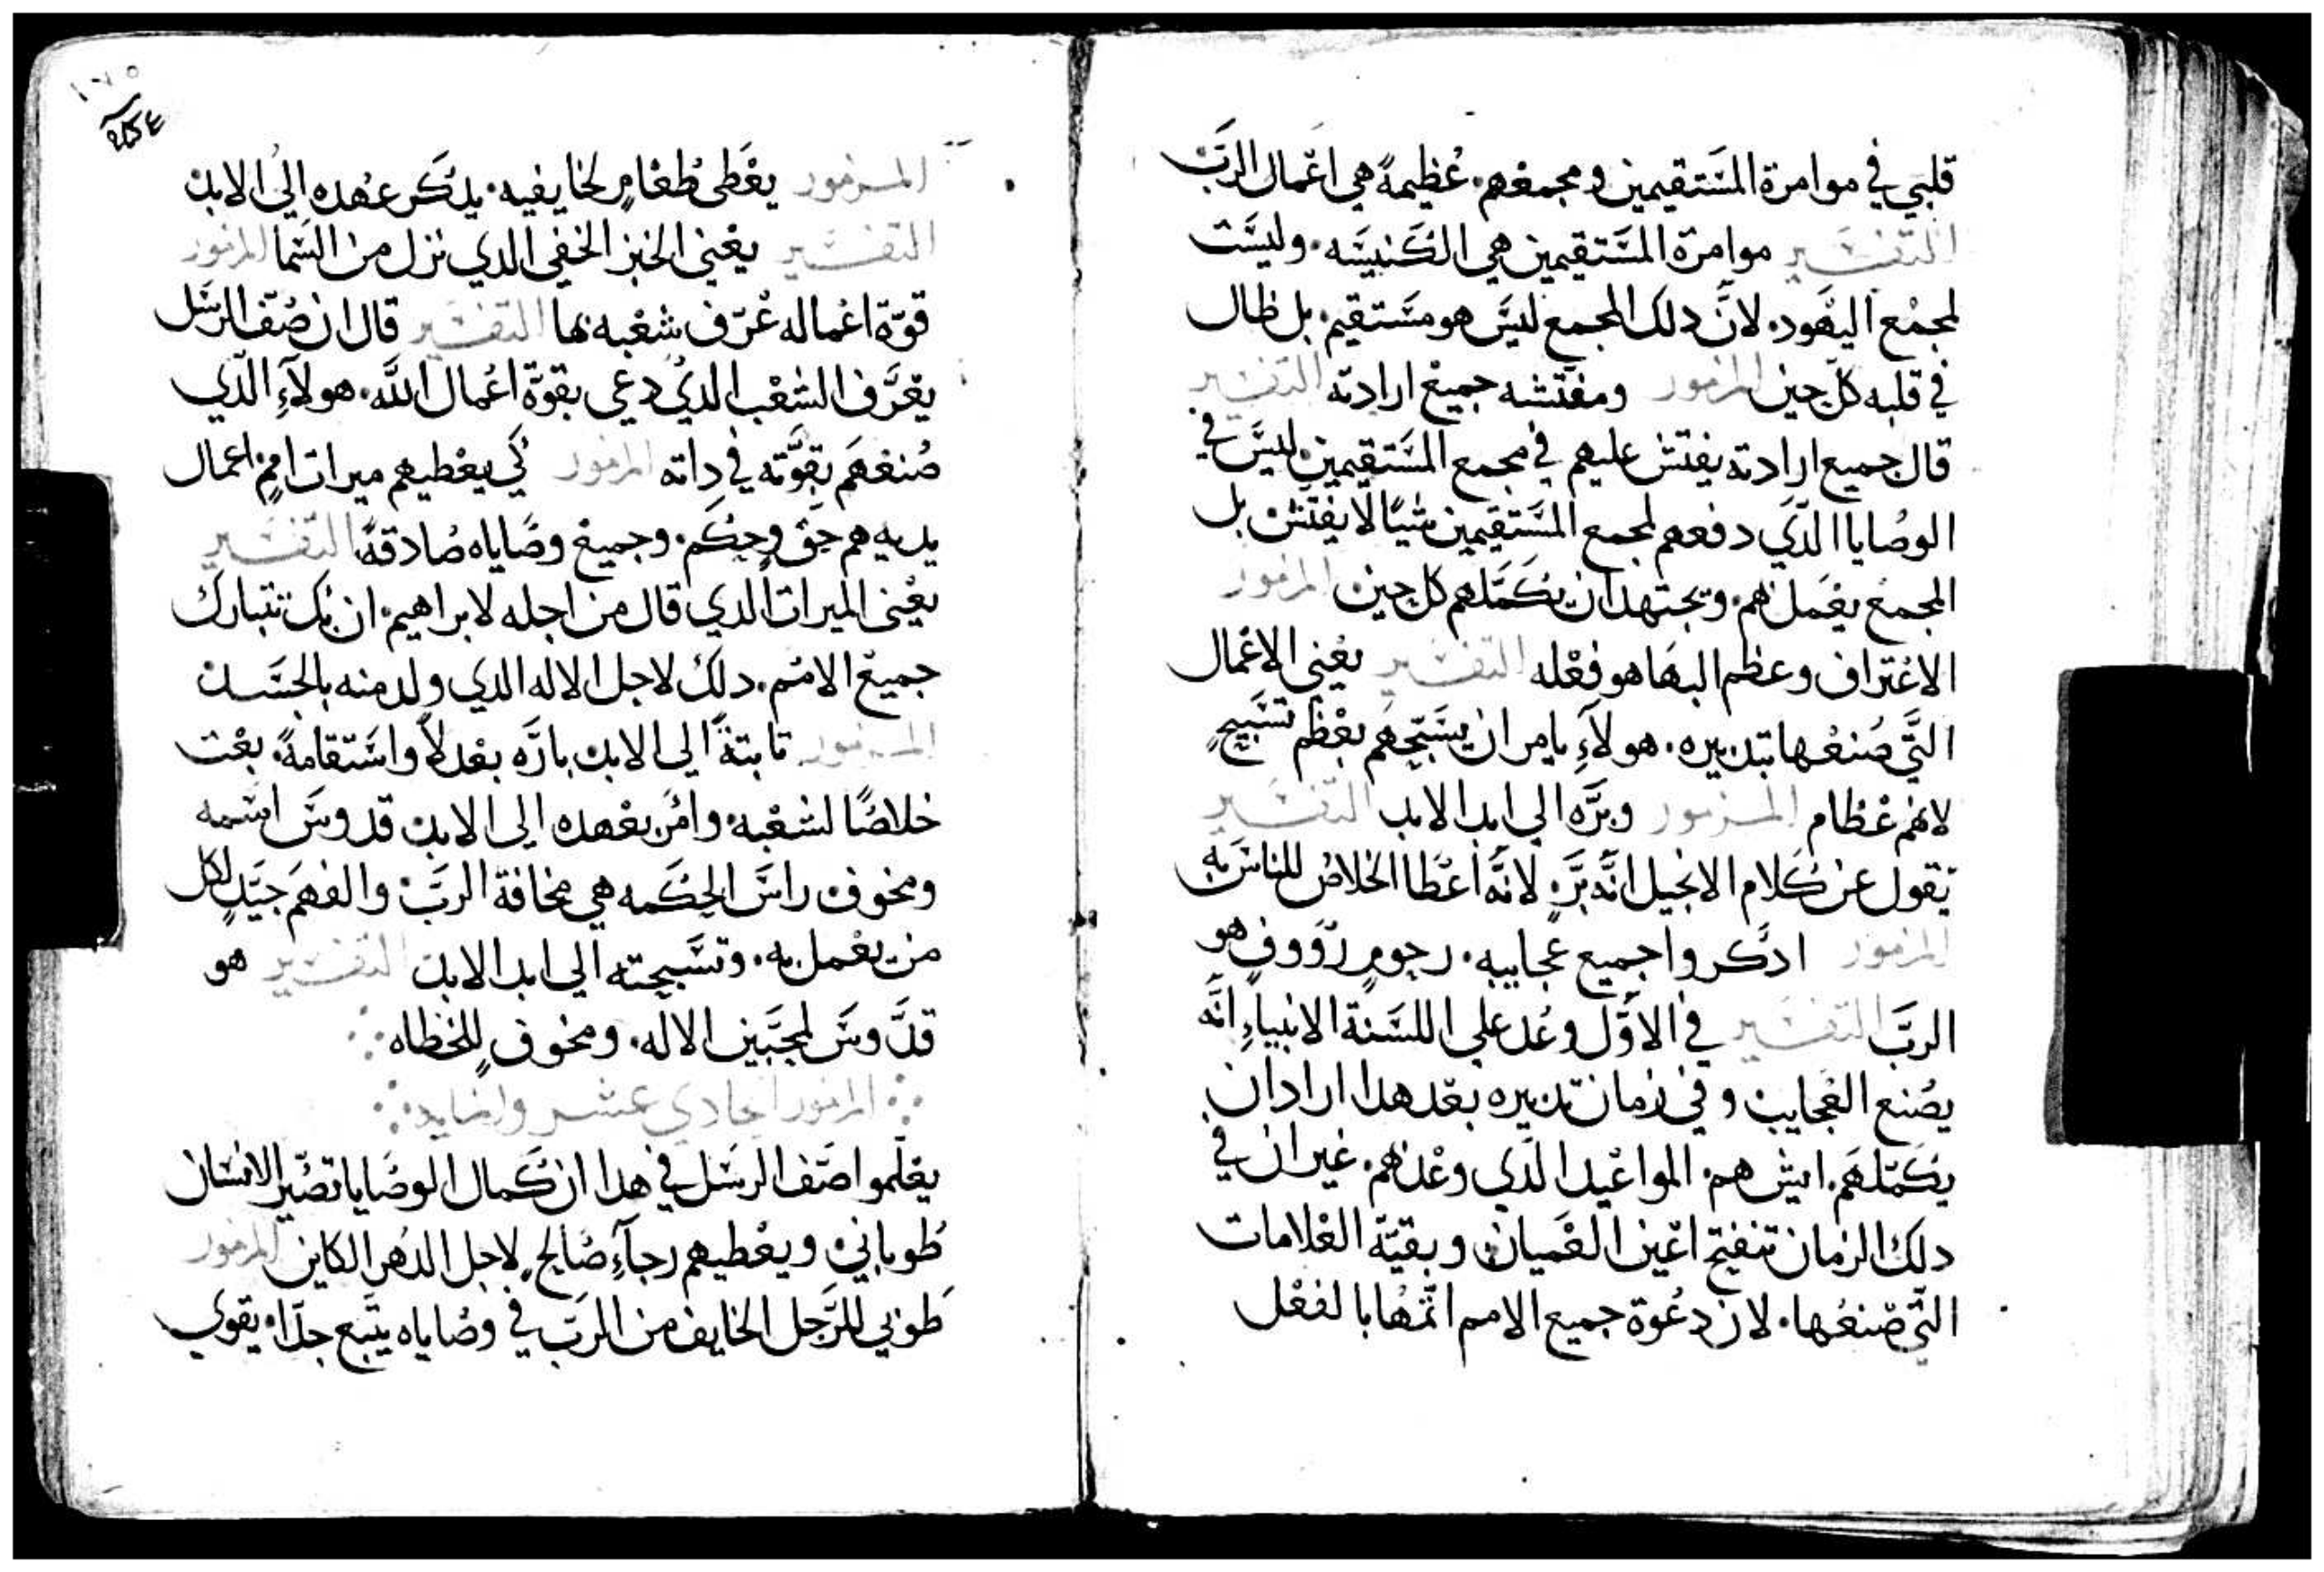 قلبي في موامرة المستقيمين ومجمعهم. عظيمة هي اعمال الرب
التفسير موامرة المستقيمين هي الكنيسه. وليست
لمجمع اليهود. لان دلك المجمع ليس هو مستقيم. بل ظال
في قلبه كل حين المزمور ومفتشه جميع ارادته التفسير
قال جميع ارادته يفتش عليهم في مجمع المستقيمين ليس في
الوصايا الدي دفعهم لمجمع المستقيمين شيا لا يفتش بل
المجمع يعمل بهم. ويجتهد ان يكملهم كل حين المزمور
الاعتراف وعظم البها هو فعله التفسير يعني الاعمال
التي صنعها بتدبيره. هولاء يامر ان يسبحهم بعظم تسبيح
لانهم عظام المزمور وبره الي ابد الابد التفسير
يقول عن كلام الانجيل انه بر لانه اعطا الخلاص للناس به
المزمور ادكروا جميع عجايبه. رحوم رووف هو
الرب التفسير في الاول وعد علي اللسنة الانبياء انه
يصنع العجايب وفي زمان تدبيره بعد هدا اراد ان
يكملهم. ايش هم المواعيد الدي وعدهم. غير ان في
دلك الزمان تنفتح اعين العميان وبقية العلامات
التي صنعها. لان دعوة جميع الامم اتمها بالفعل
المزمور يعطي طعام لخايفيه. يدكر عهده الي الابد
التفسير يعني الخبز الخفي الدي نزل من السما المزمور
قوة اعماله عرف شعبه بها التفسير قال ان صف الرسل
يعرف الشعب الدي دعي بقوة اعمال الله. هولاء الدي
صنعهم بقوته في داته المزمور كي يعطيهم ميرات امم اعمال
يديه هم حق وحكم. وجميع وصاياه صادقة التفسير
يعني الميرات الدي قال من اجله لابراهيم. ان بك تتبارك
جميع الامم. دلك لاجل الاله الدي ولد منه بالجسد
المزمور تابتة الي الابد باره بعدلا واستقامة. بعت
خلاصا لشعبه وامر بعهده الي الابد قدوس اسمه
ومخوف راس الحكمه هي مخافة الرب والفهم جيد لكل
من يعمل به. وتسبحته الي ابد الابد التفسير هو
قدوس لمحبين الاله. ومخوف للخطاه
المزمور الحادي عشر والمايه
يعلموا صف الرسل في هدا ان كمال الوصايا تصير الانسان
طوباني ويعطيهم رجاء صالح لاجل الدهر الكاين المزمور
طوبي للرجل الخايف من الرب في وصاياه يتبع جدا. يقوي